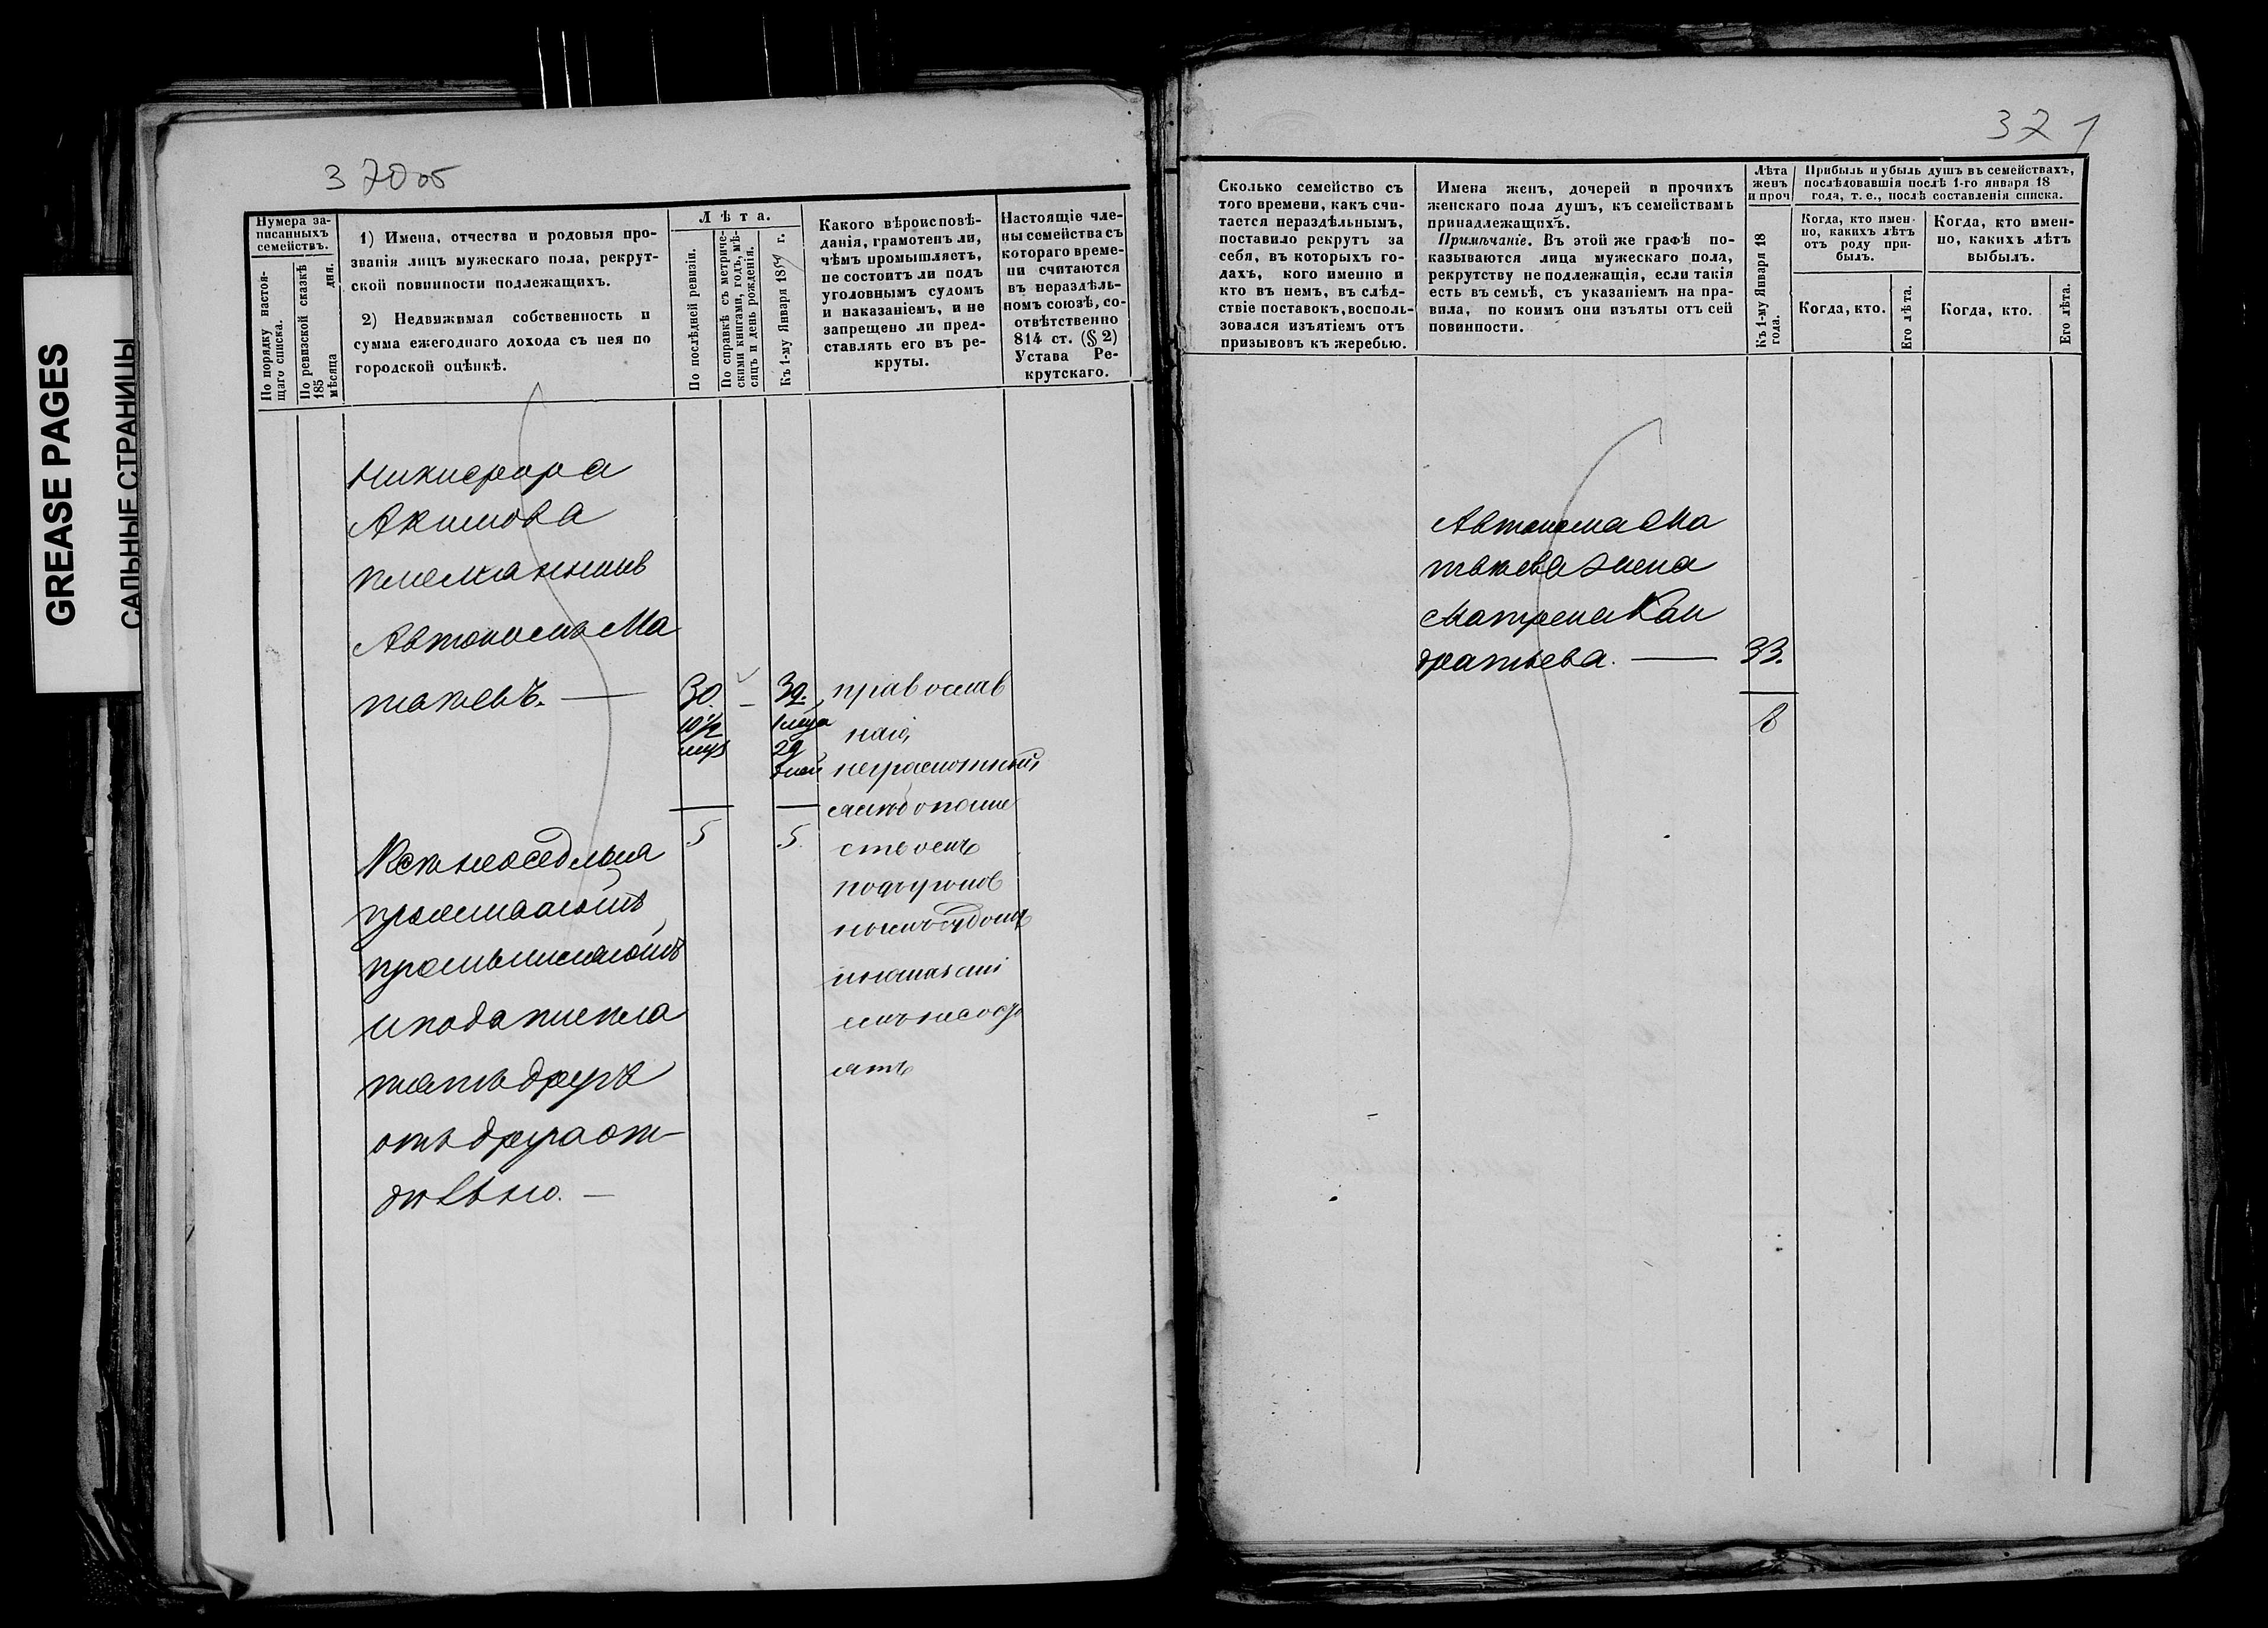 GREASE PAGES
САЛЬНЫЕ СТРАНИЦЫ
370об
Нумера за-
писанныхъ
семействъ.
По порядку настоя-
щаго списка.
По ревизской сказкѣ
185
мѣсяца дня.
1) Имена, отчества и родовыя про-
званія лицъ мужескаго пола, рекрут-
ской повинности подлежащихъ.
2) Недвижимая собственность и
сумма ежегоднаго дохода съ нея по
городской оцѣнкѣ.
Лѣта.
По послѣдней ревизіи.
По справкѣ съ метриче-
скими книгами, годъ, мѣ-
сяцъ и день рожденія.
Къ 1-му Января 18 г.
Какого вѣроисповѣ-
данія, грамотенъ ли,
чѣмъ промышляетъ,
не состоитъ ли подъ
уголовнымъ судомъ
и наказаніемъ, и не
запрещено ли пред-
ставлять его въ ре-
круты.
Настоящіе чле-
ны семейства съ
котораго време-
ни считаются
въ нераздѣль-
номъ союзѣ, со-
отвѣтственно
814 ст. (§ 2)
Устава Ре-
крутскаго.
Никифора
Акимова
племянникъ
Автономъ Ма
30.
православ
10½
наго,
29
дней
неграмотный,
5
5.
ствомъ
подъуголов
нымъ судомъ
проживаютъ
промышляютъ
и подати пла
тятъ другъ
ятъ
отъ друга от-
дѣльно.
371
Сколько семейство съ
того времени, какъ счи-
тается нераздѣльнымъ,
поставило рекрутъ за
себя, въ которыхъ го-
дахъ, кого именно и
кто въ немъ, въ слѣд-
ствіе поставокъ, восполь-
зовался изъятіемъ отъ
призывовъ къ жеребью.
Имена женъ, дочерей и прочихъ
женскаго пола душъ, къ семействамъ
принадлежащихъ.
Примѣчаніе. Въ этой же графѣ по-
казываются лица мужескаго пола,
рекрутству не подлежащія, если такія
есть въ семьѣ, съ указаніемъ на пра-
вила, по коимъ они изъяты отъ сей
повинности.
Лѣта
женъ
и проч
Къ 1-му Января 18
года.
Прибыль и убыль душъ въ семействахъ,
послѣдовавшія послѣ 1-го января 18
года, т. е., послѣ составленія списка.
Когда, кто имен-
но, какихъ лѣтъ
отъ роду при-
былъ.
Когда, кто имен-
но, какихъ лѣтъ
выбылъ.
Когда, кто.
Его лѣта.
Когда, кто.
Его лѣта.
Автонома Ма
жена
Матрена Кан
дратьева. 33.